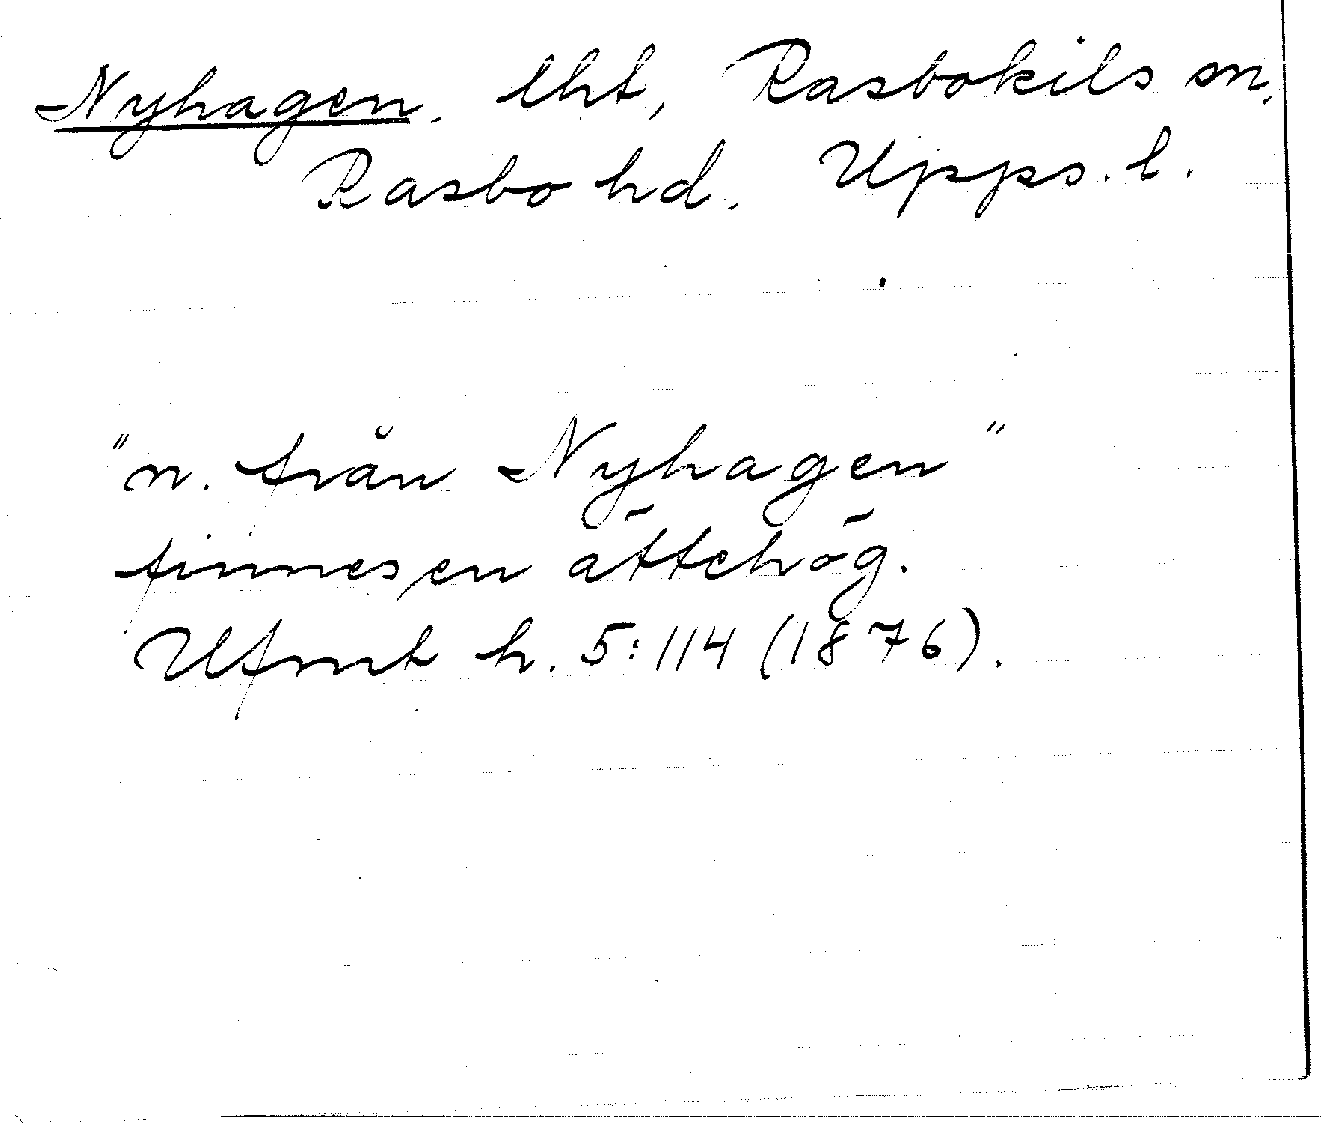 Nyhagen. lht, Rasbokils sn.
Rasbo hd. Upps. l.
"n. från Nyhagen"
finnes en ättehög.
Ufmt h. 5:114 (1876).